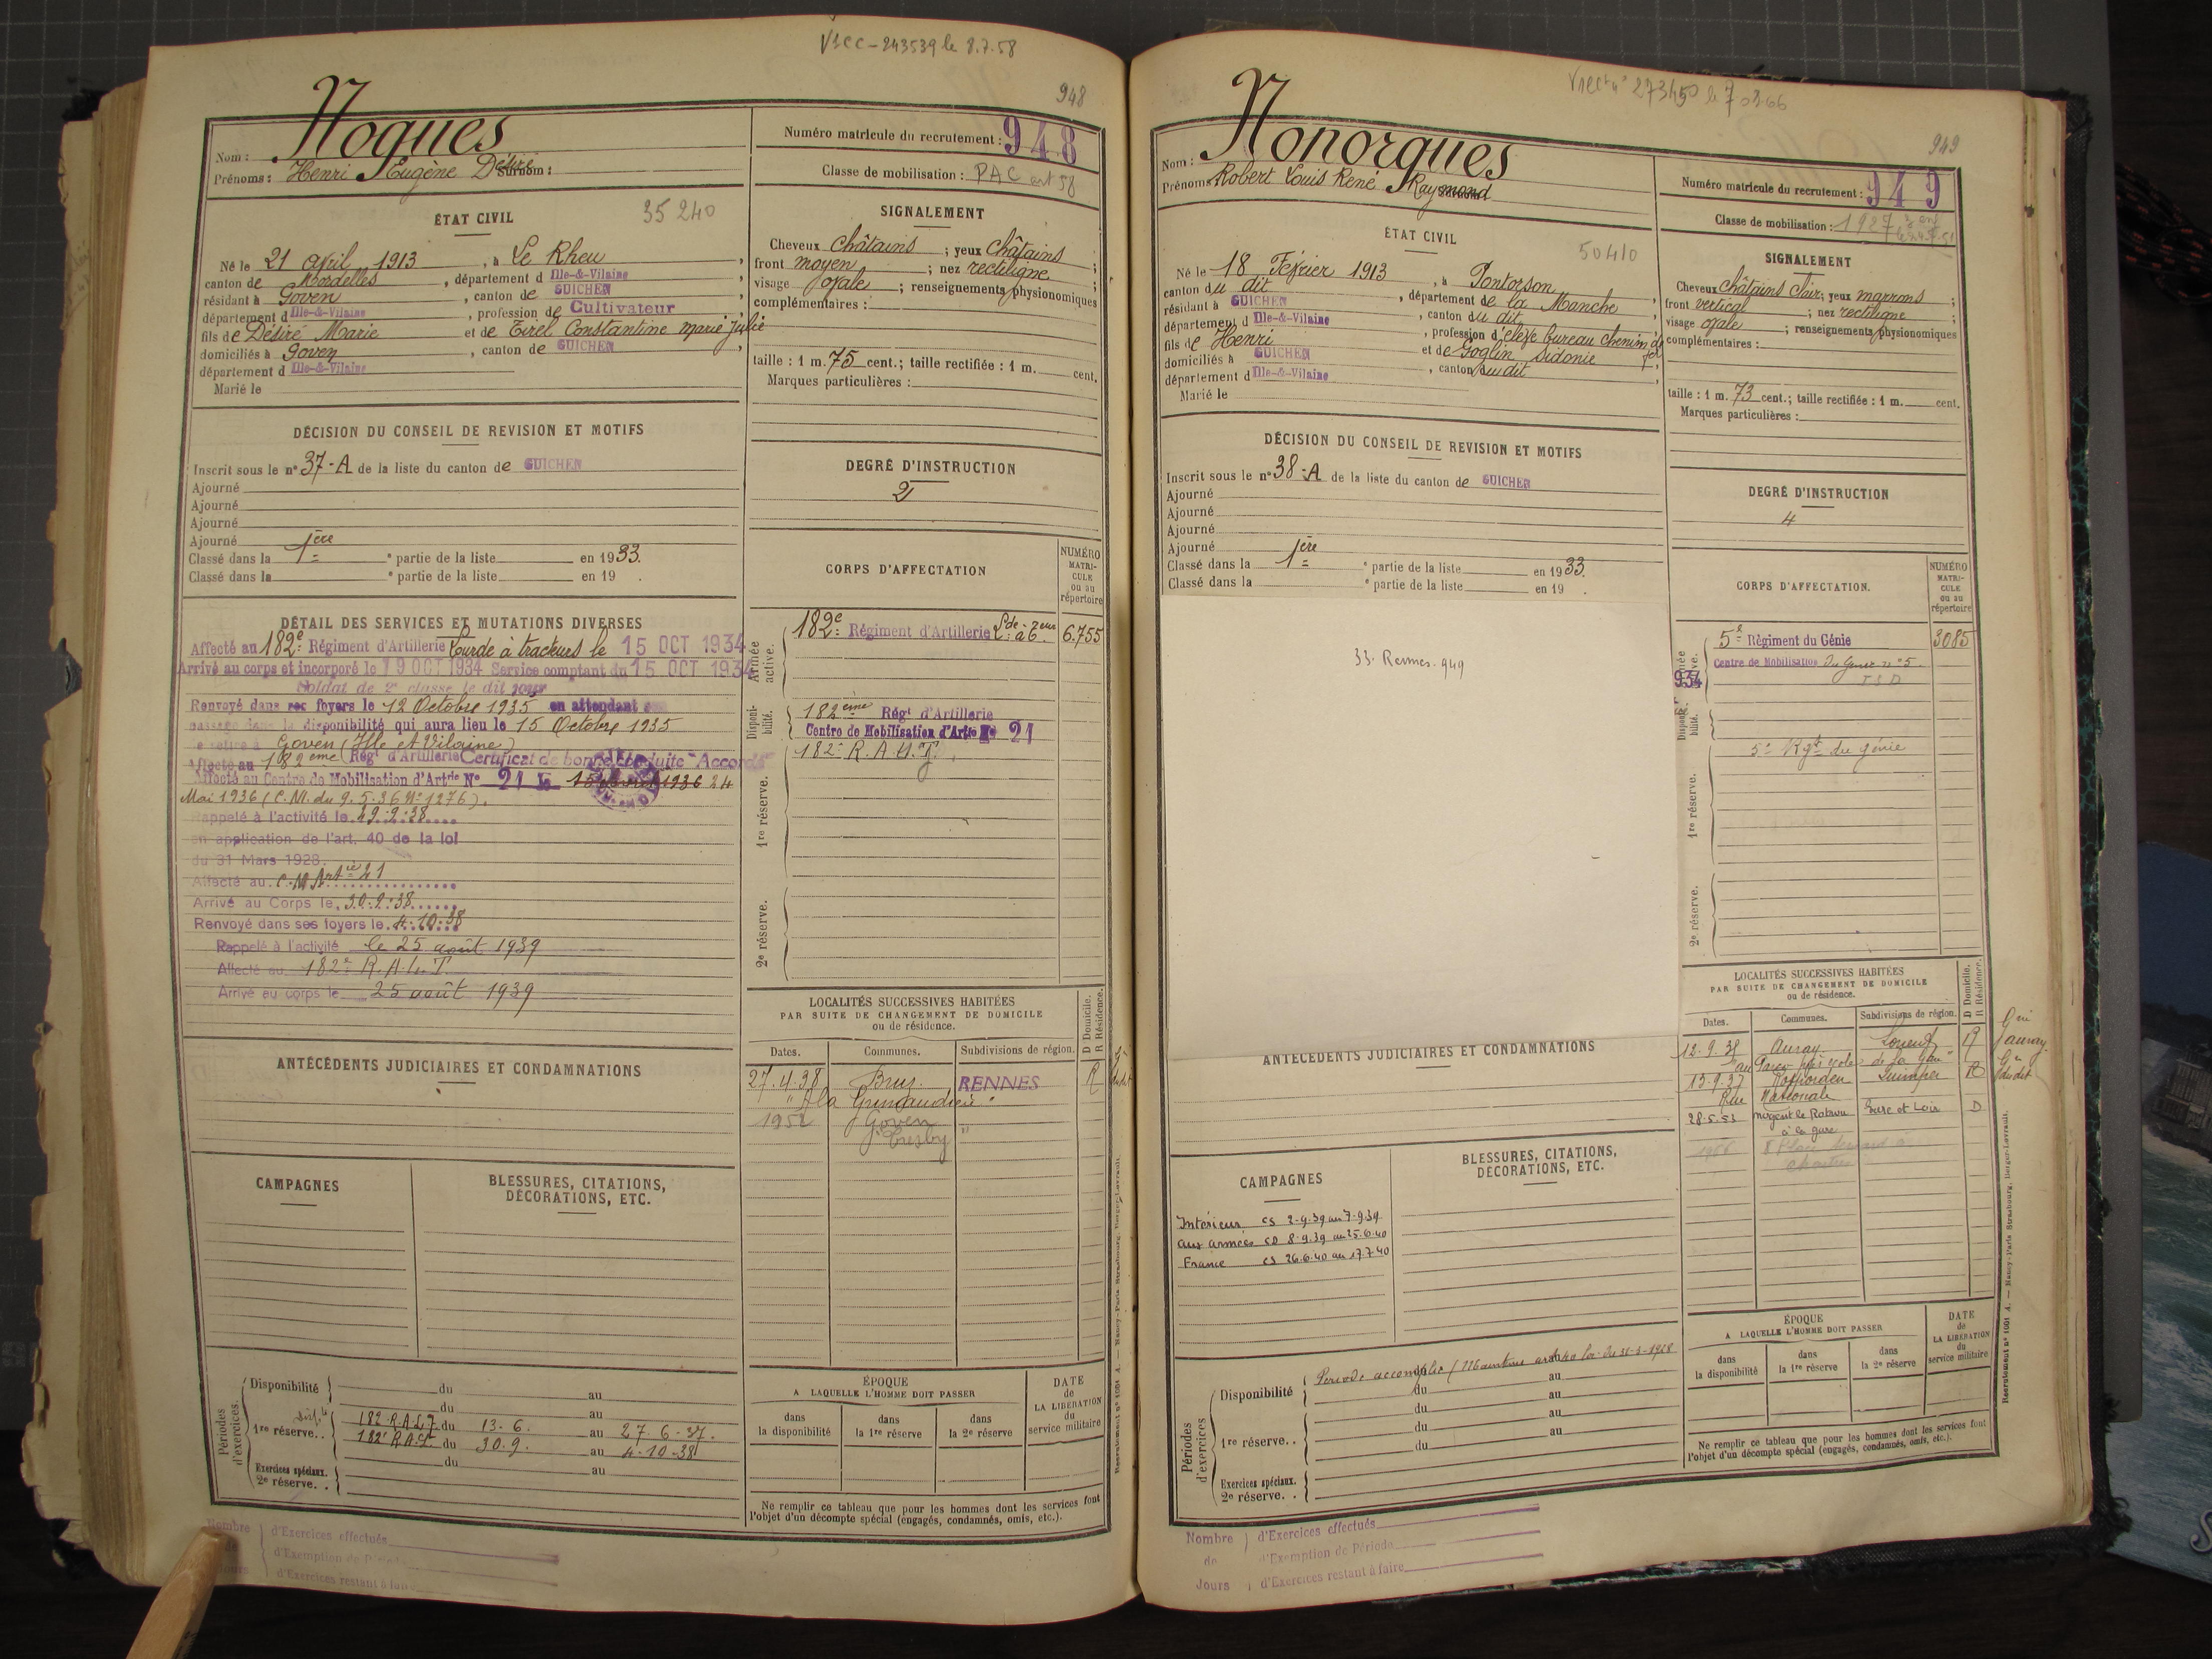 V1CC - 243539 le 8.7.58
948
Nom : Nogues
Prénoms : Henri Eugène Désiré Surnom :
Numéro matricule du recrutement : 948
Classe de mobilisation : PAC art 58
ÉTAT CIVIL
35 240
Né le 21 avril 1913, à Le Rheu,
canton de Mordelles, département d Ille-&-Vilaine
résidant à Goven, canton de GUICHEN
département d Ille-&-Vilaine, profession de Cultivateur
fils de Désiré Marie et de Tirel Constantine Marie Julie
domiciliés à Goven, canton de GUICHEN,
département d Ille-&-Vilaine
Marié le
SIGNALEMENT
Cheveux châtains ; yeux châtains ;
front moyen ; nez rectiligne ;
visage ovale ; renseignements physionomiques
complémentaires :
taille : 1 m. 75 cent.; taille rectifiée : 1 m. cent.
Marques particulières :
DÉCISION DU CONSEIL DE REVISION ET MOTIFS
Inscrit sous le n° 37-A de la liste du canton de GUICHEN
Ajourné
Ajourné
Ajourné
Ajourné
Classé dans la 1ère partie de la liste en 1933.
Classé dans la e partie de la liste en 19 .
DEGRÉ D'INSTRUCTION
2
DÉTAIL DES SERVICES ET MUTATIONS DIVERSES
Affecté au 182e Régiment d'Artillerie Lourde à tracteurs le 15 OCT 1934
Arrivé au corps et incorporé le 19 OCT 1934 Service comptant du 15 OCT 1934
Soldat de 2e classe le dit jour
Renvoyé dans ses foyers le 12 Octobre 1935 en attendant
passage dans la disponibilité qui aura lieu le 15 Octobre 1935
Goven (Ille et Vilaine)
Affecté au 182ème Régt d'Artillerie Certificat de bonne conduite "Accordé"
Affecté au Centre de Mobilisation d'Artrie N° 21 le 1936 24
Mai 1936 (C.M. du 9.5.36 N° 1276).
Rappelé à l'activité le 29.9.38
en application de l'art. 40 de la loi
du 31 Mars 1928.
Affecté au C.M Artie 21
Arrivé au Corps le 30.9.38
Renvoyé dans ses foyers le 4.10.38
Rappelé à l'activité le 25 août 1939
Affecté au 182e R.A.L.T
Arrivé au corps le 25 août 1939
CORPS D'AFFECTATION
NUMÉRO MATRICULE ou au répertoire
Armée active.
182e Régiment d'Artillerie Lde à Teur 6.755
Disponibilité.
182ème Régt d'Artillerie
Centre de Mobilisation d'Artie N° 21
1re réserve.
182e R.A.L.T.
2e réserve.
ANTÉCÉDENTS JUDICIAIRES ET CONDAMNATIONS
LOCALITÉS SUCCESSIVES HABITÉES
PAR SUITE DE CHANGEMENT DE DOMICILE
ou de résidence.
D Domicile.
R Résidence.
Dates. Communes. Subdivisions de région.
27.4.38 Bruz. RENNES R
" A la Grimaudière "
1952 Goven "
CAMPAGNES
BLESSURES, CITATIONS,
DÉCORATIONS, ETC.
Périodes d'exercices.
Disponibilité du au
du au
1re réserve. . 182 R.A.L.T. du 13-6. au 27-6-37.
182e R.A.L.T. du 30.9. au 4-10-38
du au
Exercices spéciaux.
2e réserve. .
ÉPOQUE
A LAQUELLE L'HOMME DOIT PASSER
dans la disponibilité
dans la 1re réserve
dans la 2e réserve
DATE de LA LIBÉRATION du service militaire
Ne remplir ce tableau que pour les hommes dont les services font
l'objet d'un décompte spécial (engagés, condamnés, omis, etc.).
Recrutement n° 1001 A. — Nancy-Paris-Strasbourg, Berger-Levrault.
Nombre de Jours
d'Exercices effectués
d'Exemption de Période
d'Exercices restant à faire
949
Nom : Nonorgues
Prénoms : Robert Louis René Raymond
Numéro matricule du recrutement : 949
Classe de mobilisation : 1927
ÉTAT CIVIL
50410
Né le 18 Février 1913, à Pontorson,
canton du dit, département de la Manche,
résidant à GUICHEN, canton du dit,
département d Ille-&-Vilaine, profession d'élève bureau chemin de fer
fils de Henri et de Goglin Sidonie,
domiciliés à GUICHEN, canton du dit,
département d Ille-&-Vilaine
Marié le
SIGNALEMENT
Cheveux châtains clair; yeux marrons ;
front vertical ; nez rectiligne ;
visage ovale ; renseignements physionomiques
complémentaires :
taille : 1 m. 73 cent.; taille rectifiée : 1 m. cent.
Marques particulières :
DÉCISION DU CONSEIL DE REVISION ET MOTIFS
Inscrit sous le n° 38-A de la liste du canton de GUICHEN
Ajourné
Ajourné
Ajourné
Ajourné
Classé dans la 1ère partie de la liste en 1933.
Classé dans la e partie de la liste en 19 .
DEGRÉ D'INSTRUCTION
4
33. Rennes. 949
CORPS D'AFFECTATION.
NUMÉRO MATRICULE ou au répertoire
5e Régiment du Génie 3085
Centre de Mobilisation du Génie n° 5
934
5e Rgt du génie
1re réserve.
2e réserve.
ANTÉCÉDENTS JUDICIAIRES ET CONDAMNATIONS
LOCALITÉS SUCCESSIVES HABITÉES
PAR SUITE DE CHANGEMENT DE DOMICILE
ou de résidence.
D Domicile.
R Résidence.
Dates. Communes. Subdivisions de région.
12.9.36 Auray Lorient R
13.9.37 Rosporden Quimper R
Rue Nationale
28.5.53 Nogent le Rotrou Eure et Loir D
à la gare
1966
CAMPAGNES
Intérieur CS 2-9.39 au 7-9.39
aux armées CD 8.9.39 au 25.6.40
France CS 26.6.40 au 17.7.40
BLESSURES, CITATIONS,
DÉCORATIONS, ETC.
Périodes d'exercices
Disponibilité
Période accomplie
du au
du au
1re réserve. . du au
du au
Exercices spéciaux.
2e réserve. .
ÉPOQUE
A LAQUELLE L'HOMME DOIT PASSER
dans la disponibilité
dans la 1re réserve
dans la 2e réserve
DATE de LA LIBÉRATION du service militaire
Ne remplir ce tableau que pour les hommes dont les services font
l'objet d'un décompte spécial (engagés, condamnés, omis, etc.).
Recrutement n° 1001 A. — Nancy-Paris-Strasbourg, Berger-Levrault.
Nombre de Jours
d'Exercices effectués
d'Exemption de Période
d'Exercices restant à faire